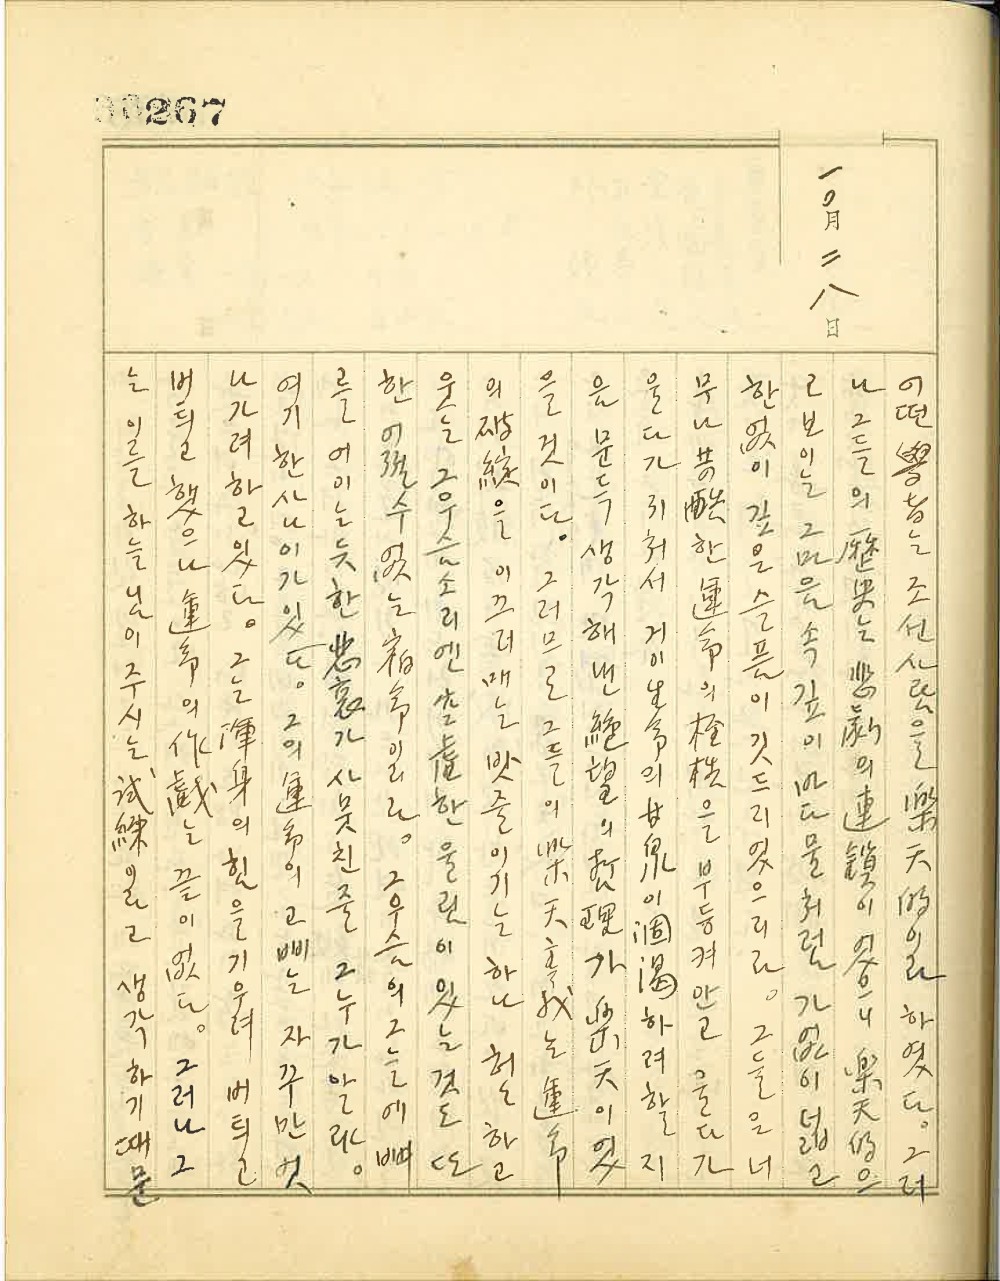 267
一〇月 二八日
어떤 學者는 조선사람을 樂天的이라 하였다. 그러
나 그들의 歷史는 悲劇의 連鎖이 였으니 樂天的으
로 보이는 그 마음속 깊이 바다물처럼 가없이 넓고
한없이 깊은 슬픔이 깃드리였으리라. 그들은 너
무나 苛酷한 運命의 桎梏을 부등켜안고 울다가
울다가 지쳐서 거이 生命의 甘泉이 涸渴하려할 지
음 문득 생각해낸 絶望의 哲理가 樂天이였
을 것이다. 그러므로 그들의 樂天主義는 運命
의 破綻을 이끄러매는 밧줄이기는 하나 허는 하고
웃는 그 우슴소리엔 空虛한 울림이 있는 것도 또
한 어찌할수 없는 宿命이리라. 그 우슴의 그늘에 뼈
를 어이는듯한 悲哀가 사뭇친줄 그 누가 알랴.
여기 한 사나이가 있다. 그의 運命의 고삐는 자꾸만 벗
나가려 하고 있다. 그는 渾身의 힘을 기우려 버티고
버티고 했으나 運命의 作戱는 끝이 없다. 그러나 그
는 이를 하느님이 주시는 試練이라고 생각하기 때문